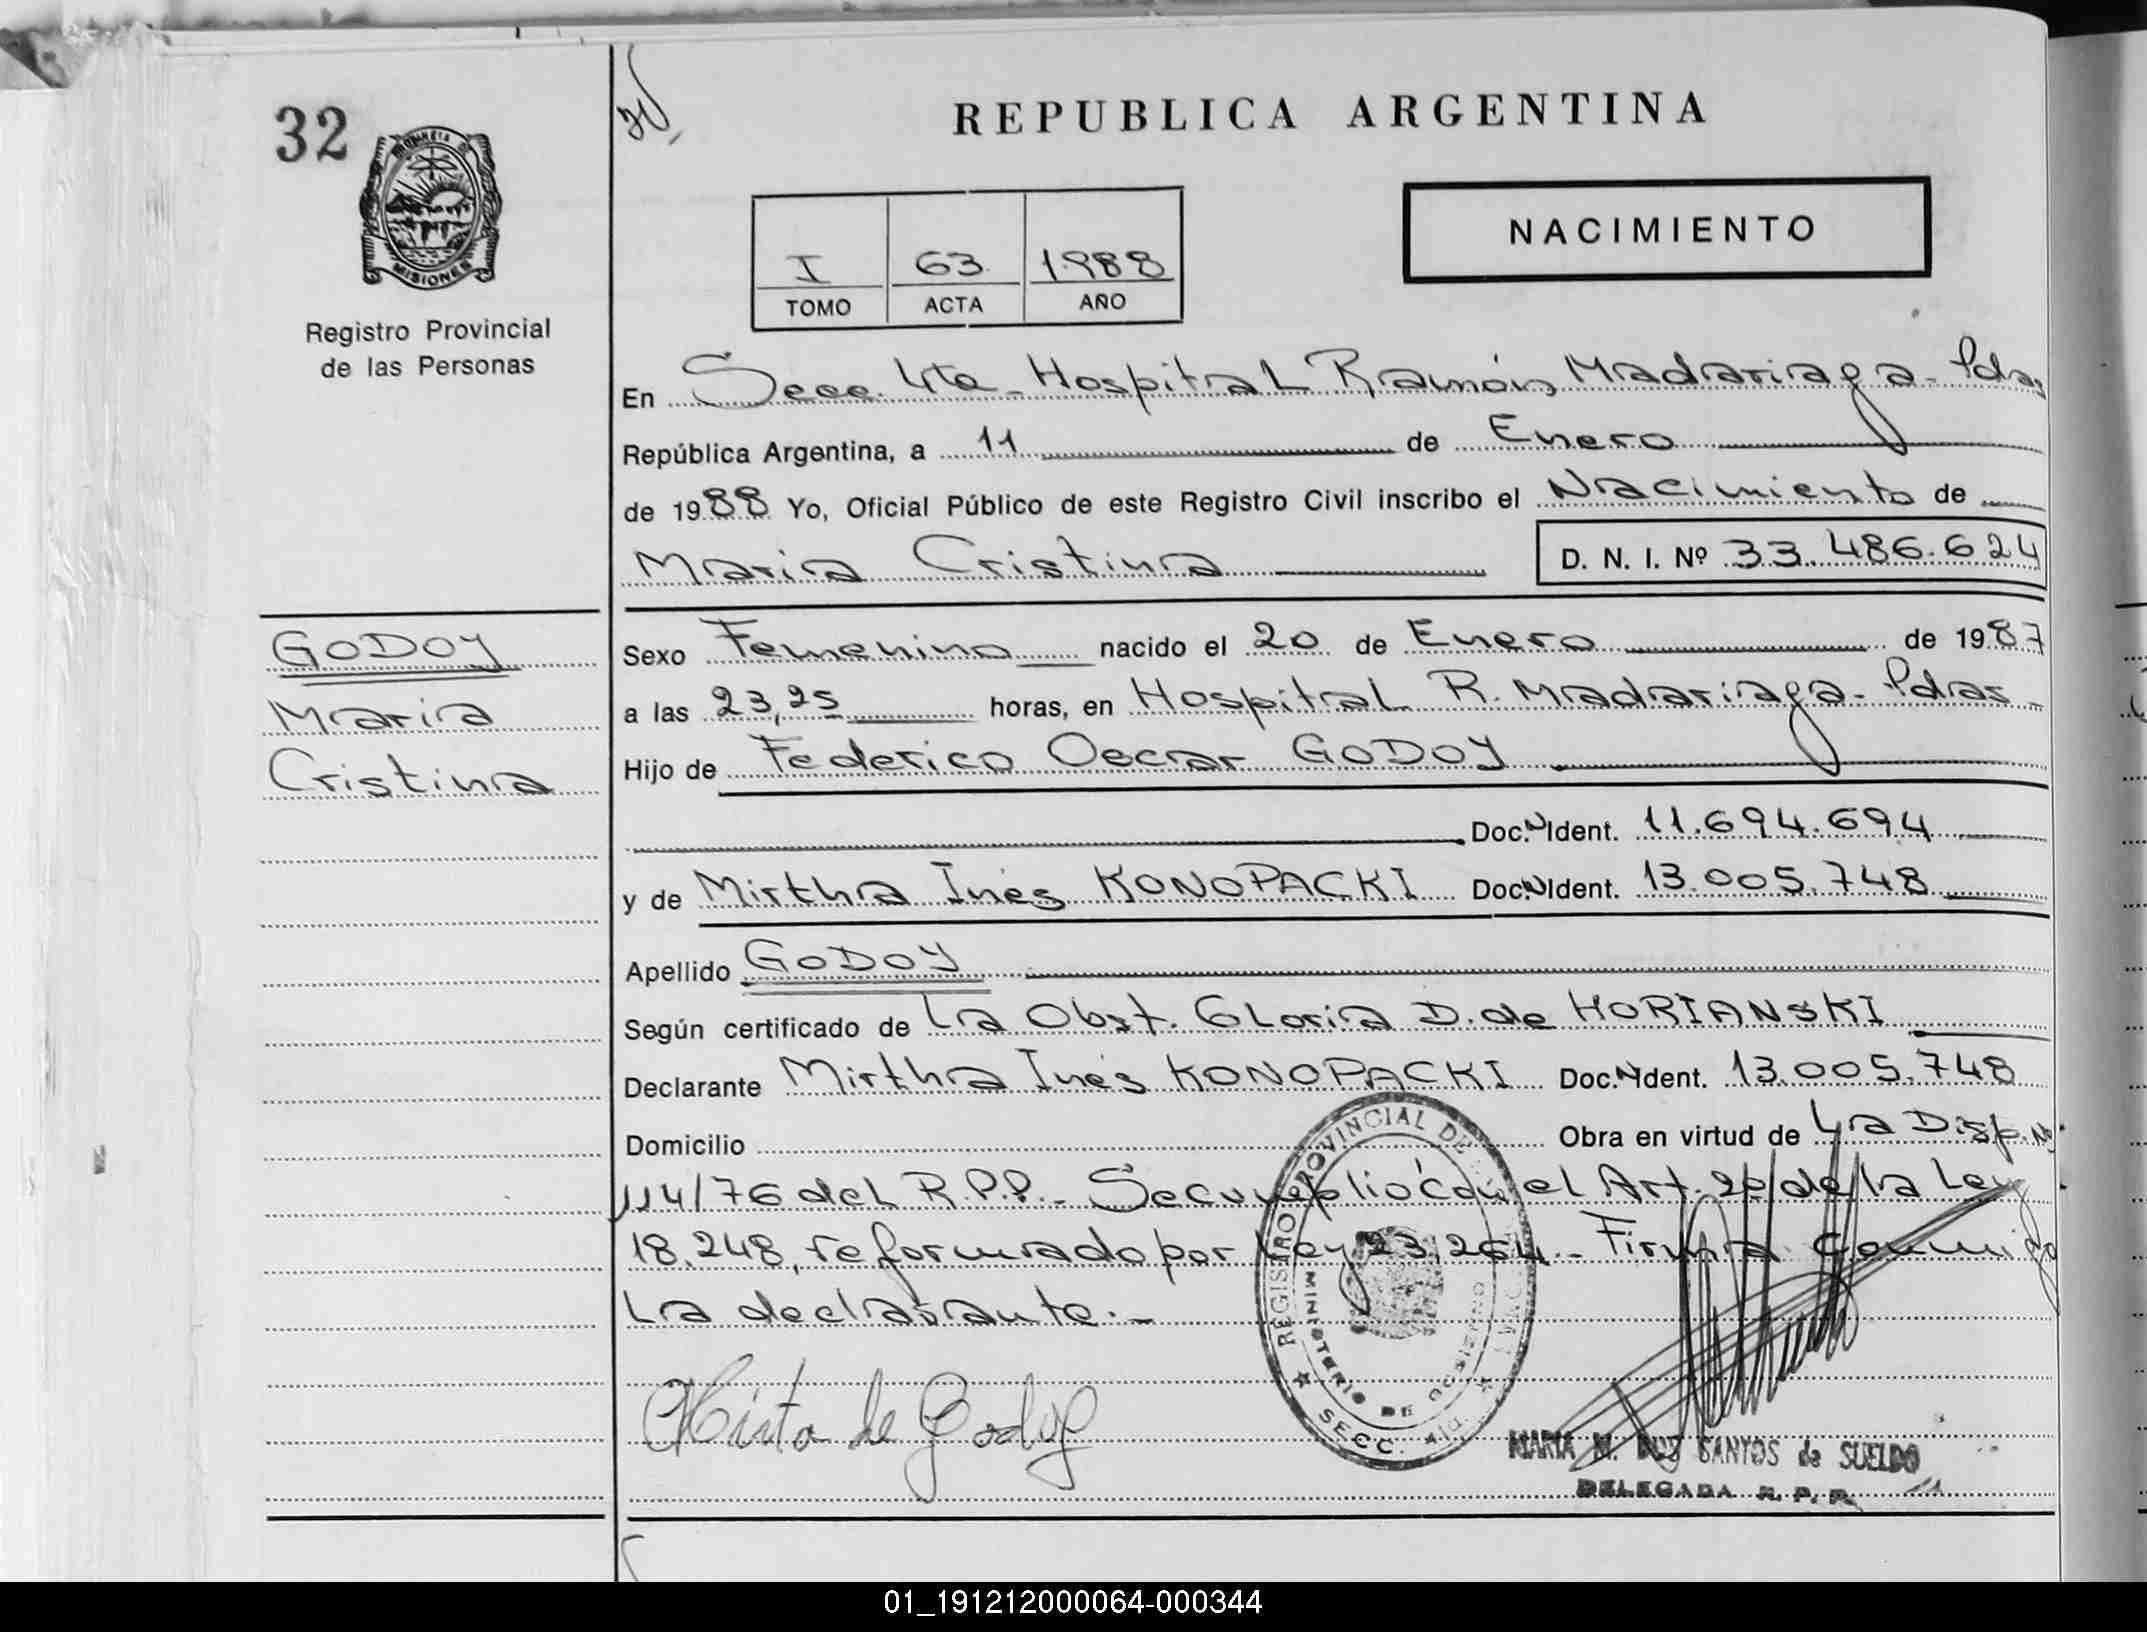 32
REPUBLICA ARGENTINA
PROVINCIA DE
MISIONES
Registro Provincial
de las Personas
NACIMIENTO
I 63 1988
TOMO ACTA AÑO
En Secc. 4ta - Hospital Ramón Madariaga - Pdas
República Argentina, a 11 de Enero
de 1988 Yo, Oficial Público de este Registro Civil inscribo el Nacimiento de
Maria Cristina D. N. I. Nº 33.486.624
GODOY
Maria
Cristina
Sexo Femenino nacido el 20 de Enero de 1987
a las 23,25 horas, en Hospital R. Madariaga - Pdas -
Hijo de Federico Oscar GODOY
Doc. N Ident. 11.694.694
y de Mirtha Inés KONOPACKI Doc. N Ident. 13.005.748
Apellido GODOY
Según certificado de La Obst. Gloria D. de HORIANSKI
Declarante Mirtha Inés KONOPACKI Doc. N Ident. 13.005.748
Domicilio Obra en virtud de La Disp. Nº
114/76 del R.P.P. - Se cumplió con el Art. 2º de la Ley
18.248, reformado por Ley 23.264 - Firma Conmigo
La declarante. -
Mirta de Godoy
REGISTRO PROVINCIAL DE
MINISTERIO DE GOBIERNO
SECC. 4ta.
MARIA M. DOS SANTOS de SUELDO
DELEGADA R. P. P.
01_191212000064-000344